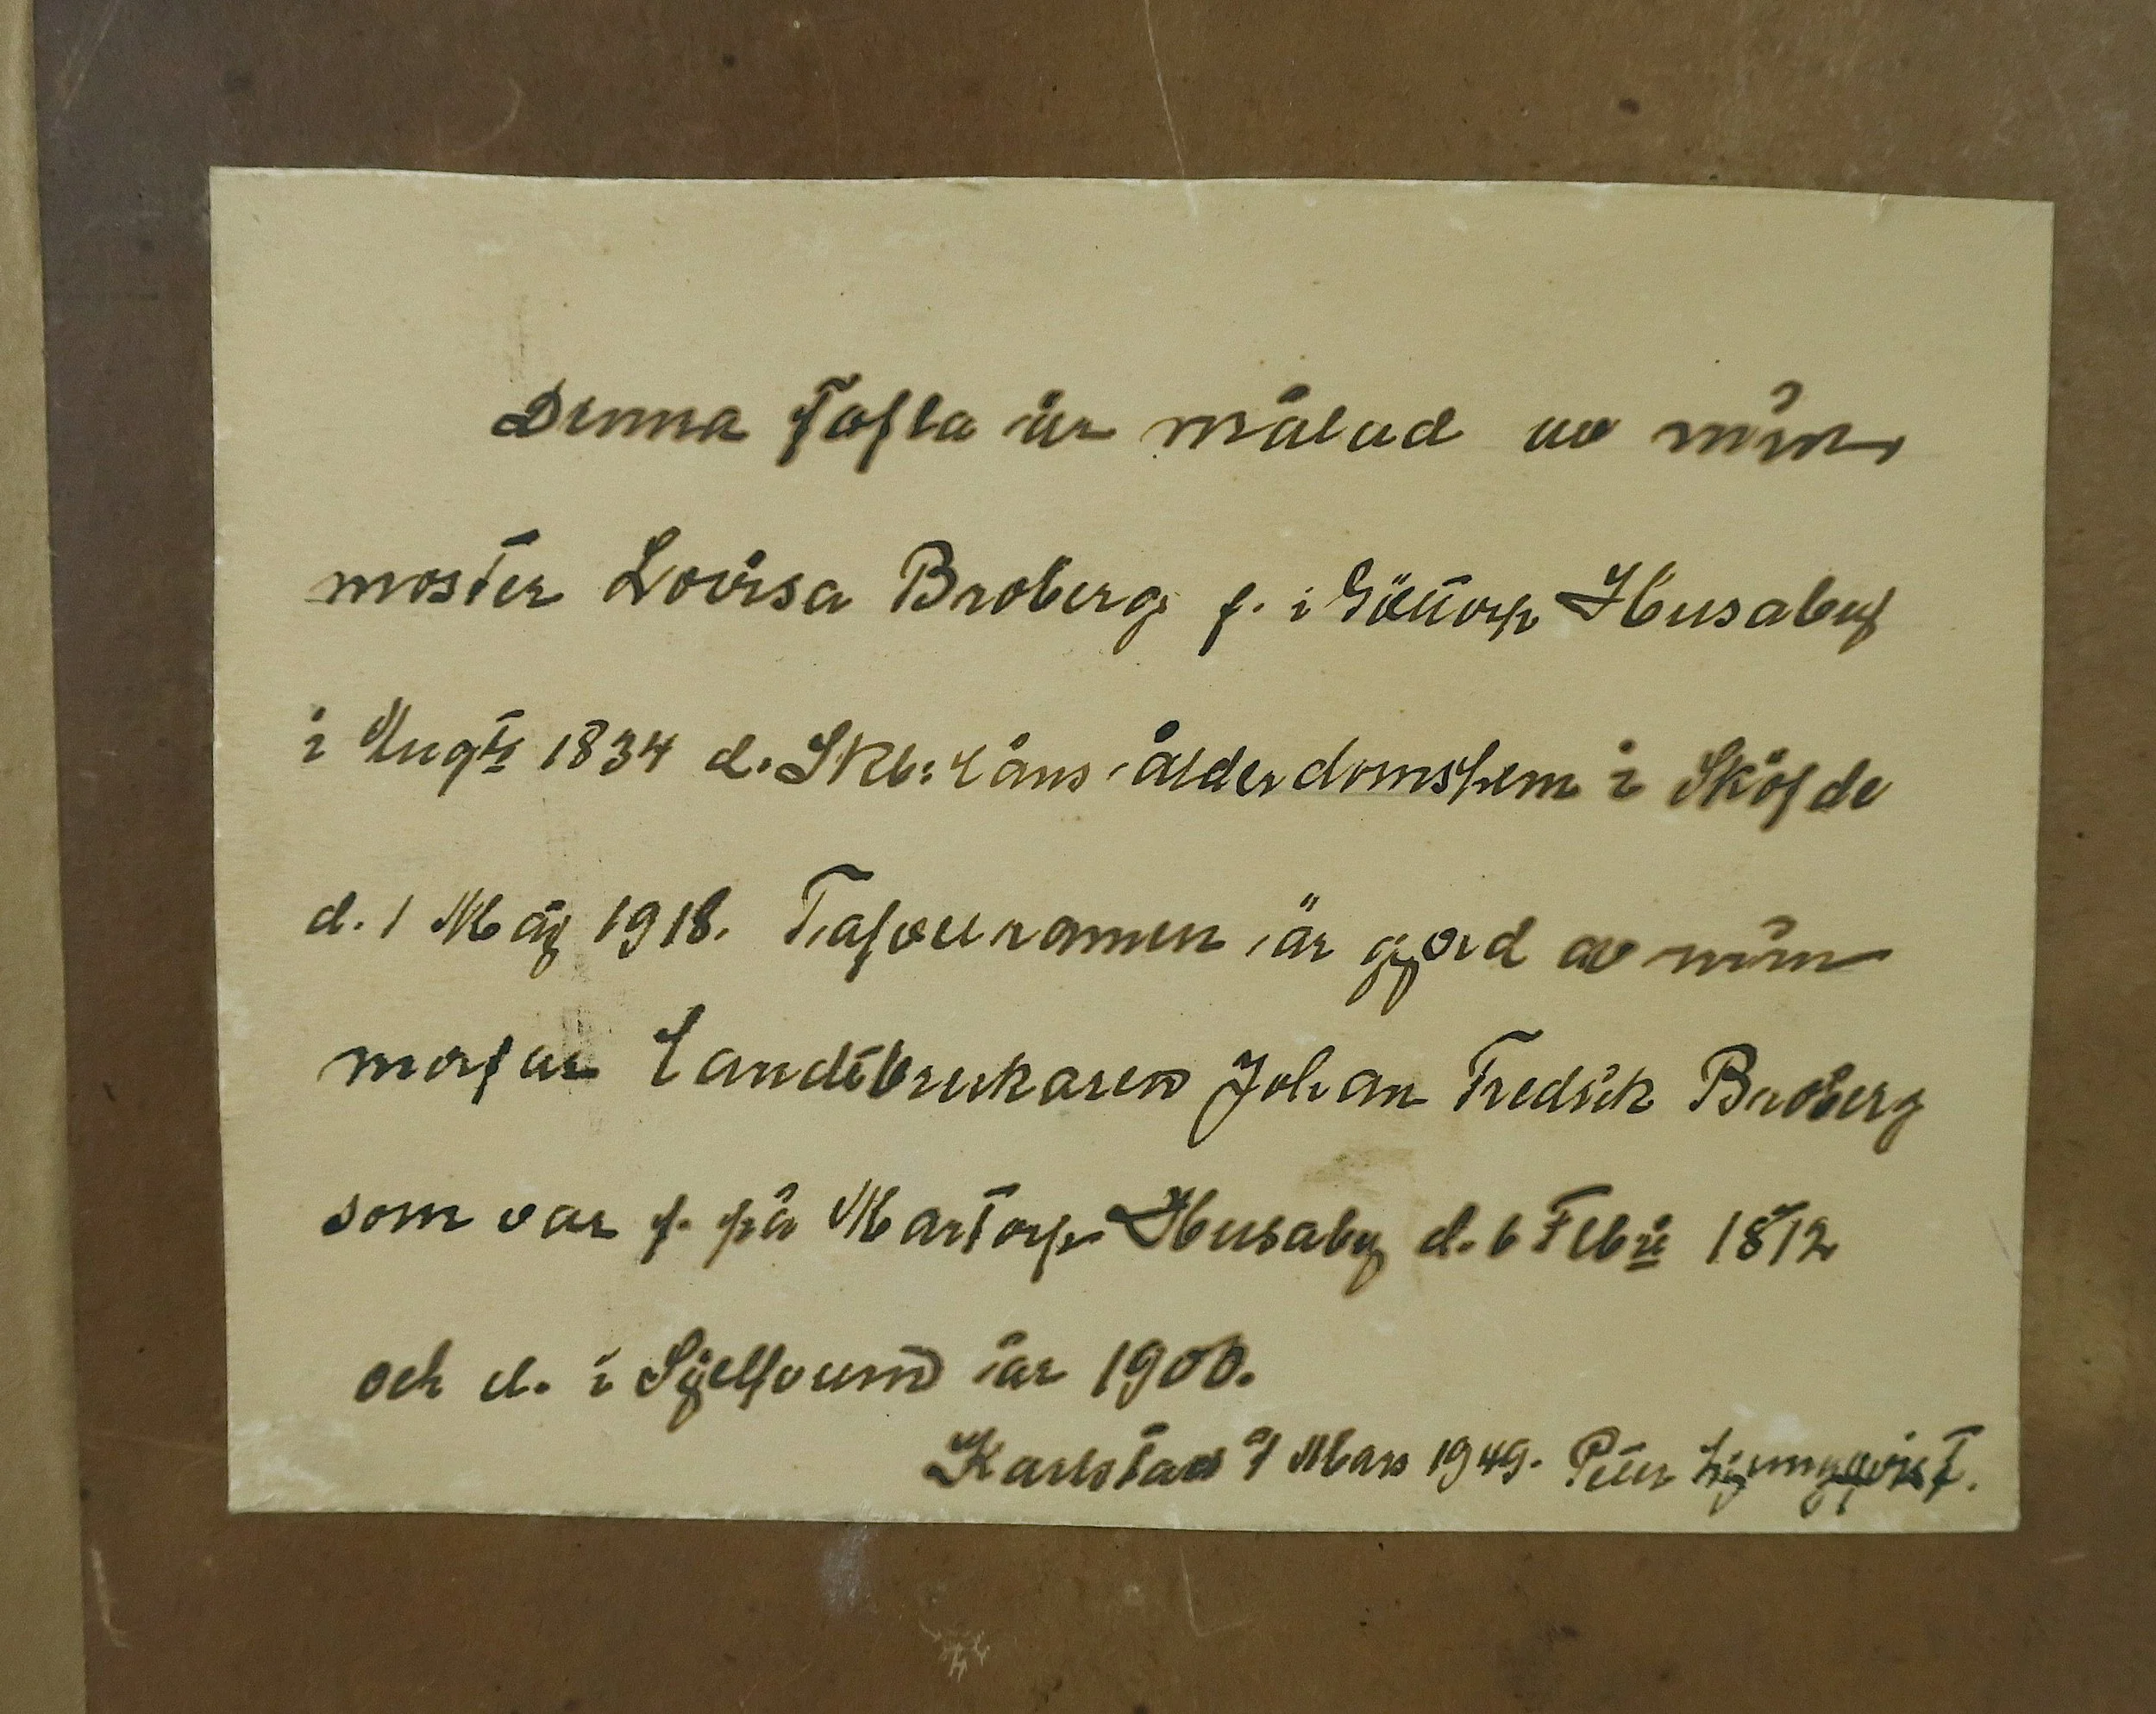 Denna Tafla är målad av min
moster Lovisa Broberg f. i Götorp Husaby
i Augti 1834 d. Skb: Läns ålderdomshem i Sköfde
d. 1 Maj 1918. Tafvelramen är gjord av min
morfar Landtbrukaren Johan Fredrik Broberg
som var f. på Martorp Husaby d. 6 Febri 1812
och d. i Sjelfvum år 1900.
Karlstad d/1 Mars 1949. Peter Ljungqvist.